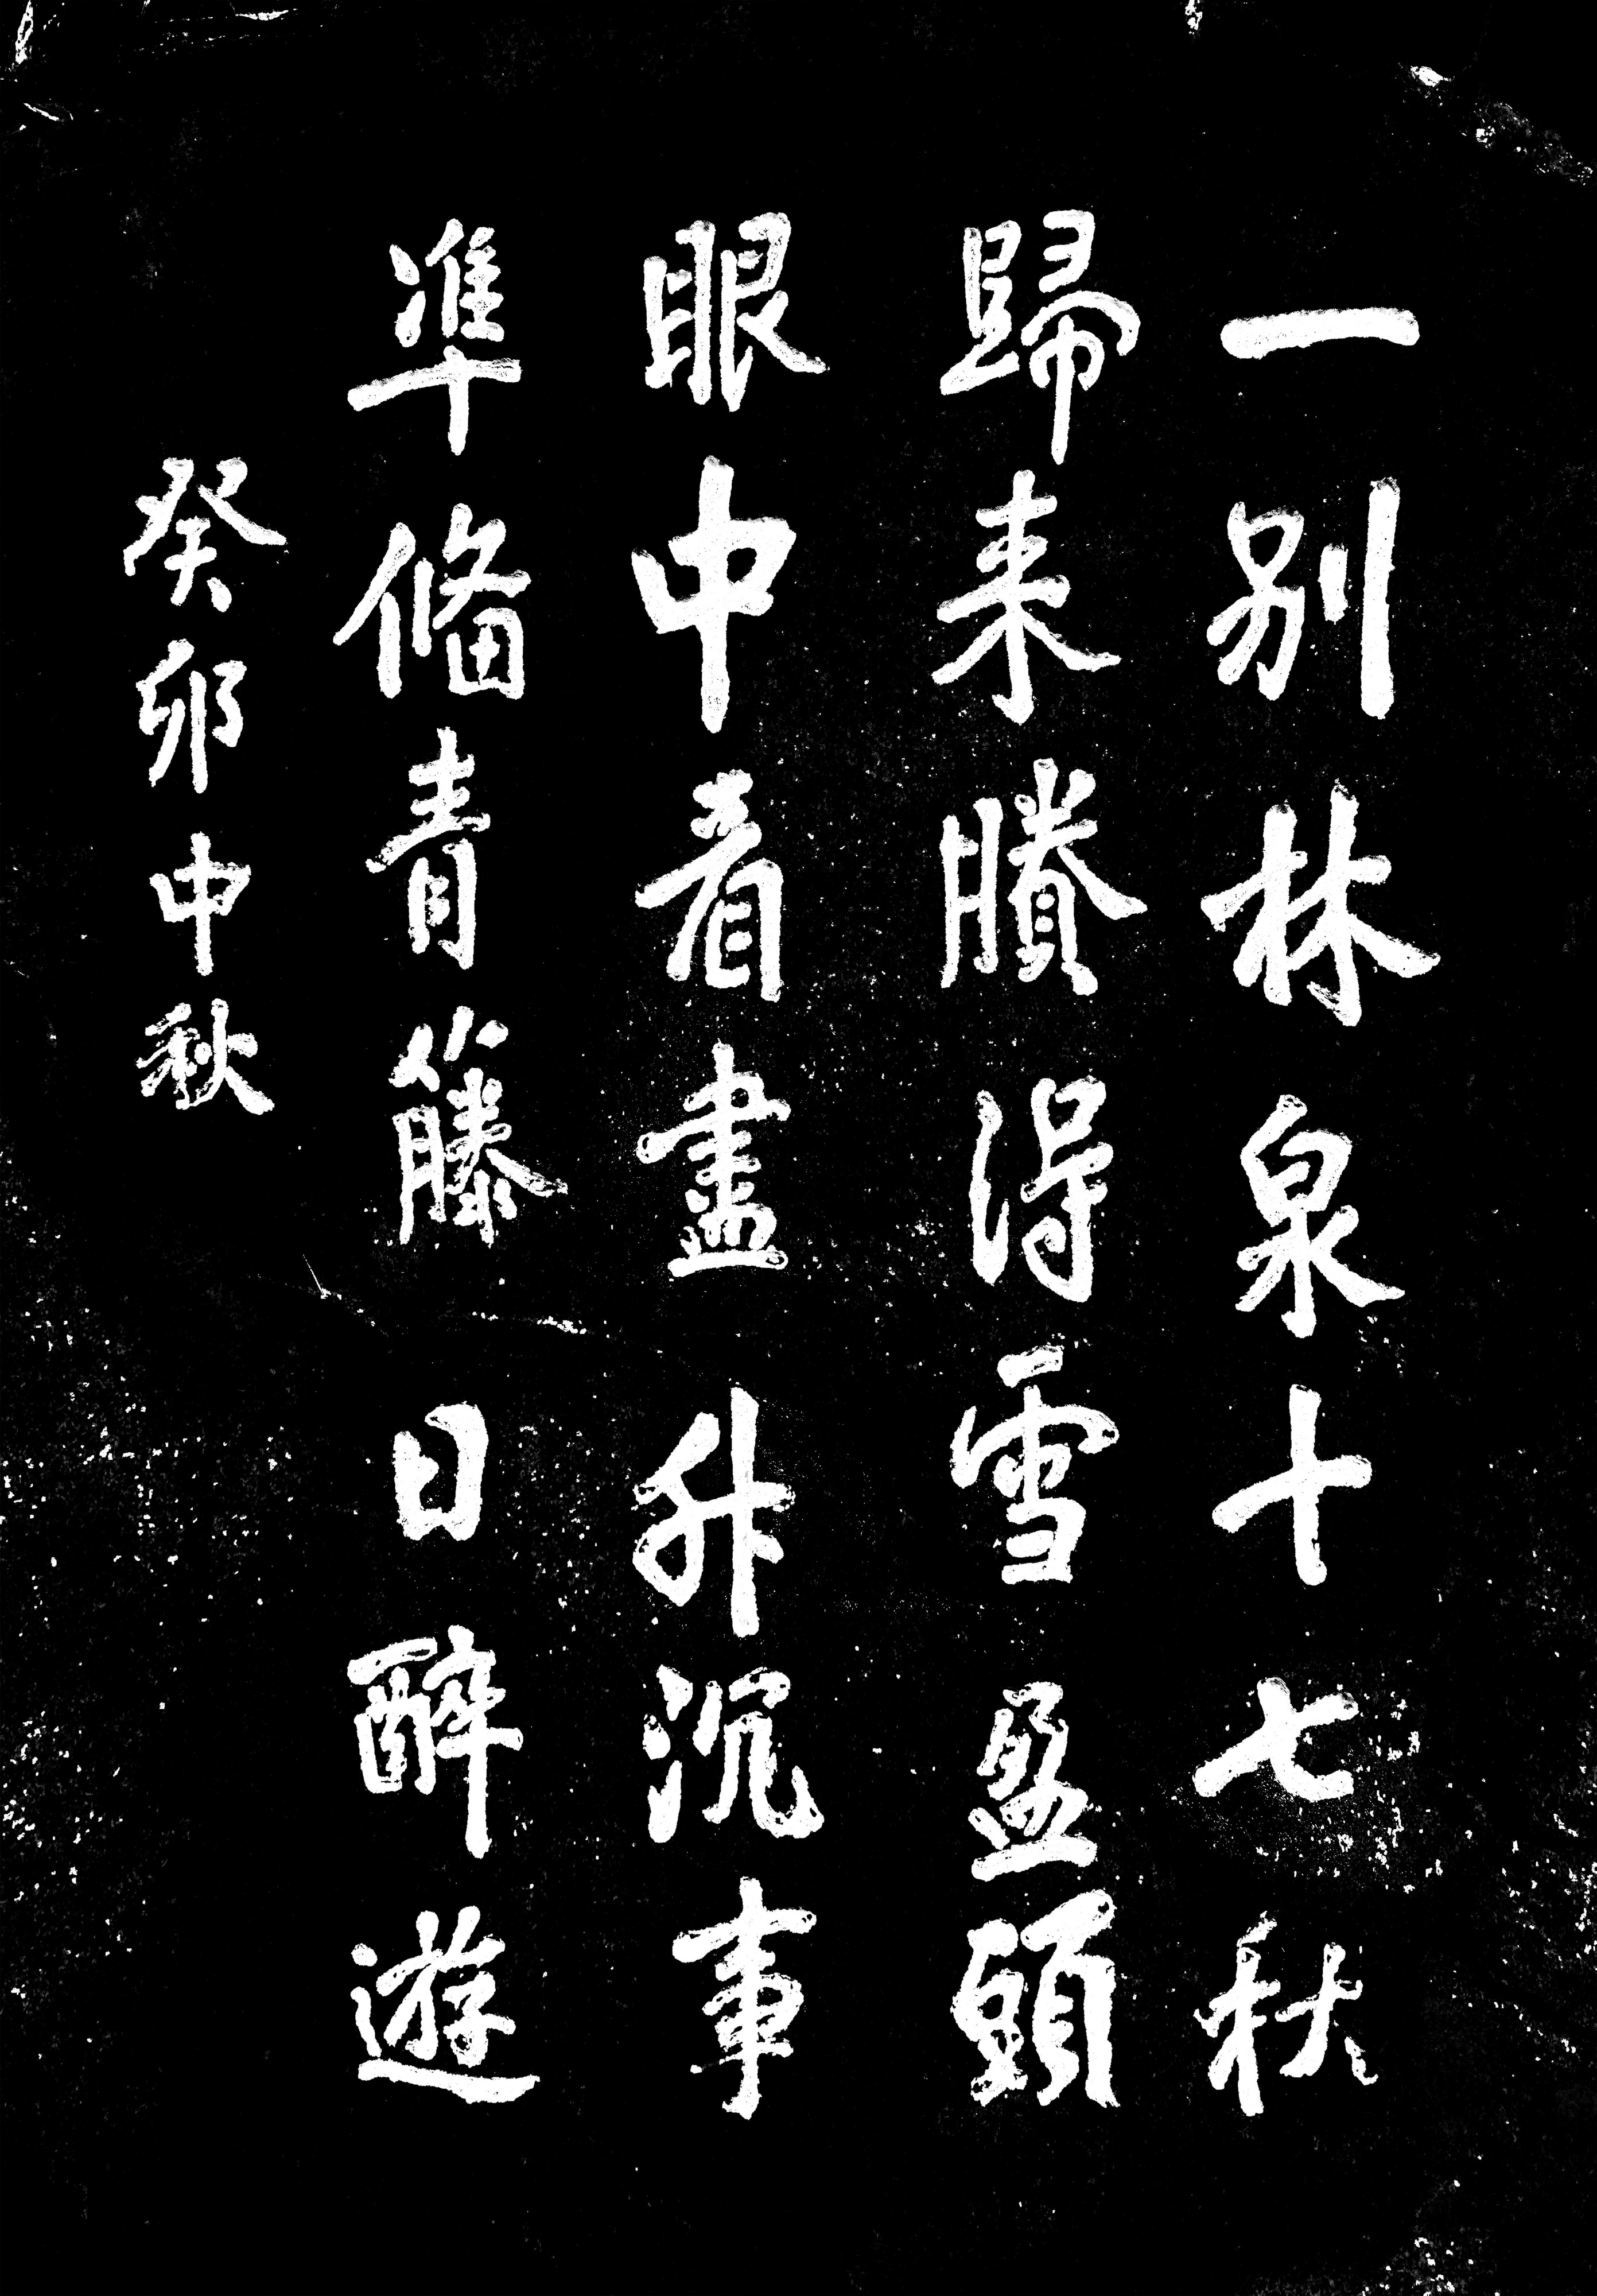 一别林泉十七秋
歸来賸得雪盈頭
眼中看盡升沉事
準備青籐日醉遊
癸卯中秋